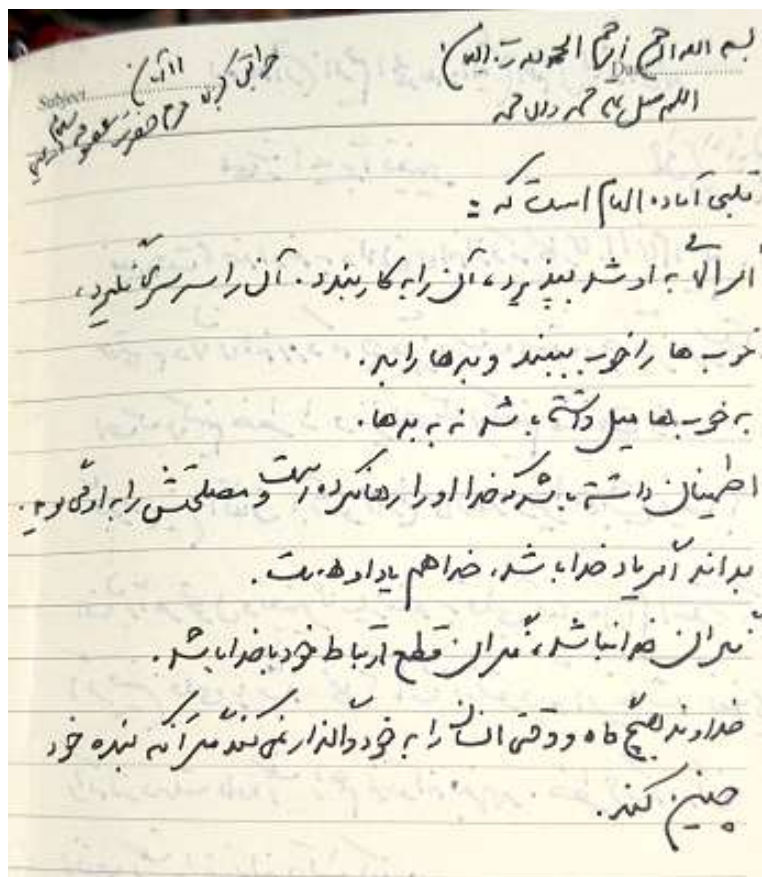 بسم الله الرحمن الرحیم الحمد لله رب العالمین
Date
اللهم صل علی محمد و آل محمد
Subject
حرم حضرت معصومه
قلبی آماده الهام است که :
اگر الهامی به او شد بپذیرد، آن را به کار بندد. آن را سرسری نگیرد،
خوب ها را خوب ببیند و بدها را بد.
به خوب ها میل داشته باشد نه به بدها.
اطمینان داشته باشد که خدا او را رها نکرده است و مصلحتش را به او می گوید.
بداند اگر یاد خدا باشد، خدا هم یاد او هست.
نگران خدا نباشد، نگران قطع ارتباط خود با خدا باشد.
خداوند هیچ گاه و وقتی انسان را به خود واگذار نمی کند مگر آنکه بنده خود
چنین کند.